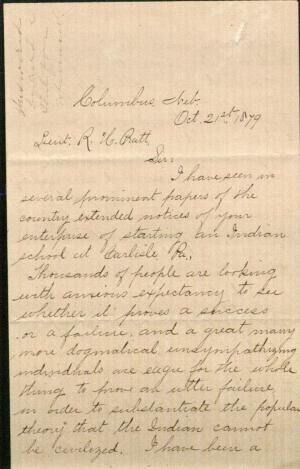 Columbus, Neb.
Oct. 21st. 1879
Lieut. R. H. Pratt,
Sir:
I have seen in
several prominent papers of the
country extended notices of your
enterprise of starting an Indian
school at Carlisle, Pa.
Thousands of people are looking
with anxious expectancy to see
whether it proves a success
or a failure, and a great many
more dogmatical, unsympathizing
individuals are eager for the whole
thing to prove an utter failure,
in order to substantiate the popular
theory that the Indian cannot
be civilized. I have been a